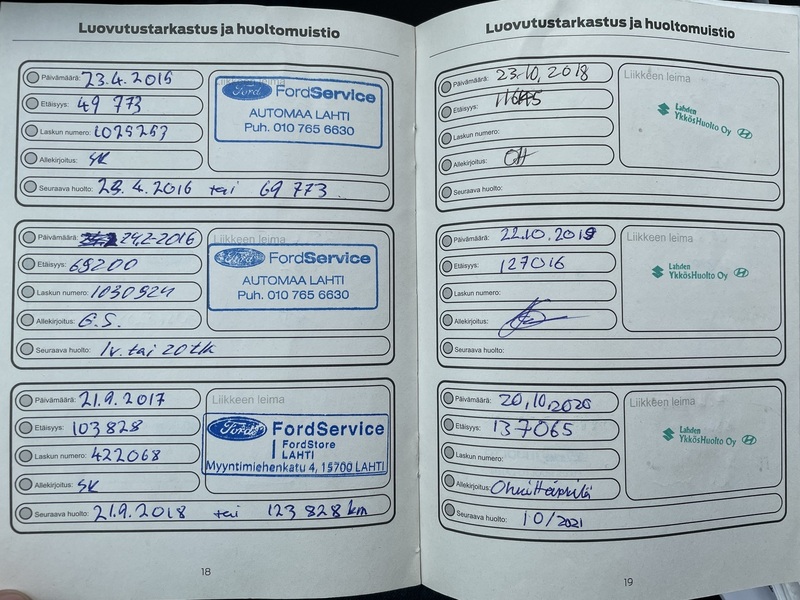 Luovutustarkastus ja huoltomuistio
Päivämäärä: 23.4.2015
Etäisyys: 49 773
Laskun numero: 1025253
Allekirjoitus: SK
Seuraava huolto: 23.4.2016 tai 69 773
Liikkeen leima
Ford FordService
AUTOMAA LAHTI
Puh. 010 765 6630
Päivämäärä: 24.2-2016
Etäisyys: 69200
Laskun numero: 1030924
Allekirjoitus: G.S.
Seuraava huolto: 1v. tai 20tk
Liikkeen leima
Ford FordService
AUTOMAA LAHTI
Puh. 010 765 6630
Päivämäärä: 21.9.2017
Etäisyys: 103828
Laskun numero: 422068
Allekirjoitus: SK
Seuraava huolto: 21.9.2018 tai 123 828 km
Liikkeen leima
Ford FordService
FordStore
LAHTI
Myyntimiehenkatu 4, 15700 LAHTI
18
Luovutustarkastus ja huoltomuistio
Päivämäärä: 23.10.2018
Etäisyys:
Laskun numero:
Allekirjoitus: OH
Seuraava huolto:
Liikkeen leima
Lahden
YkkösHuolto Oy
Päivämäärä: 22.10.2019
Etäisyys: 127016
Laskun numero:
Allekirjoitus:
Seuraava huolto:
Liikkeen leima
Lahden
YkkösHuolto Oy
Päivämäärä: 20.10.2020
Etäisyys: 137065
Laskun numero:
Allekirjoitus:
Seuraava huolto: 10/2021
Liikkeen leima
Lahden
YkkösHuolto Oy
19